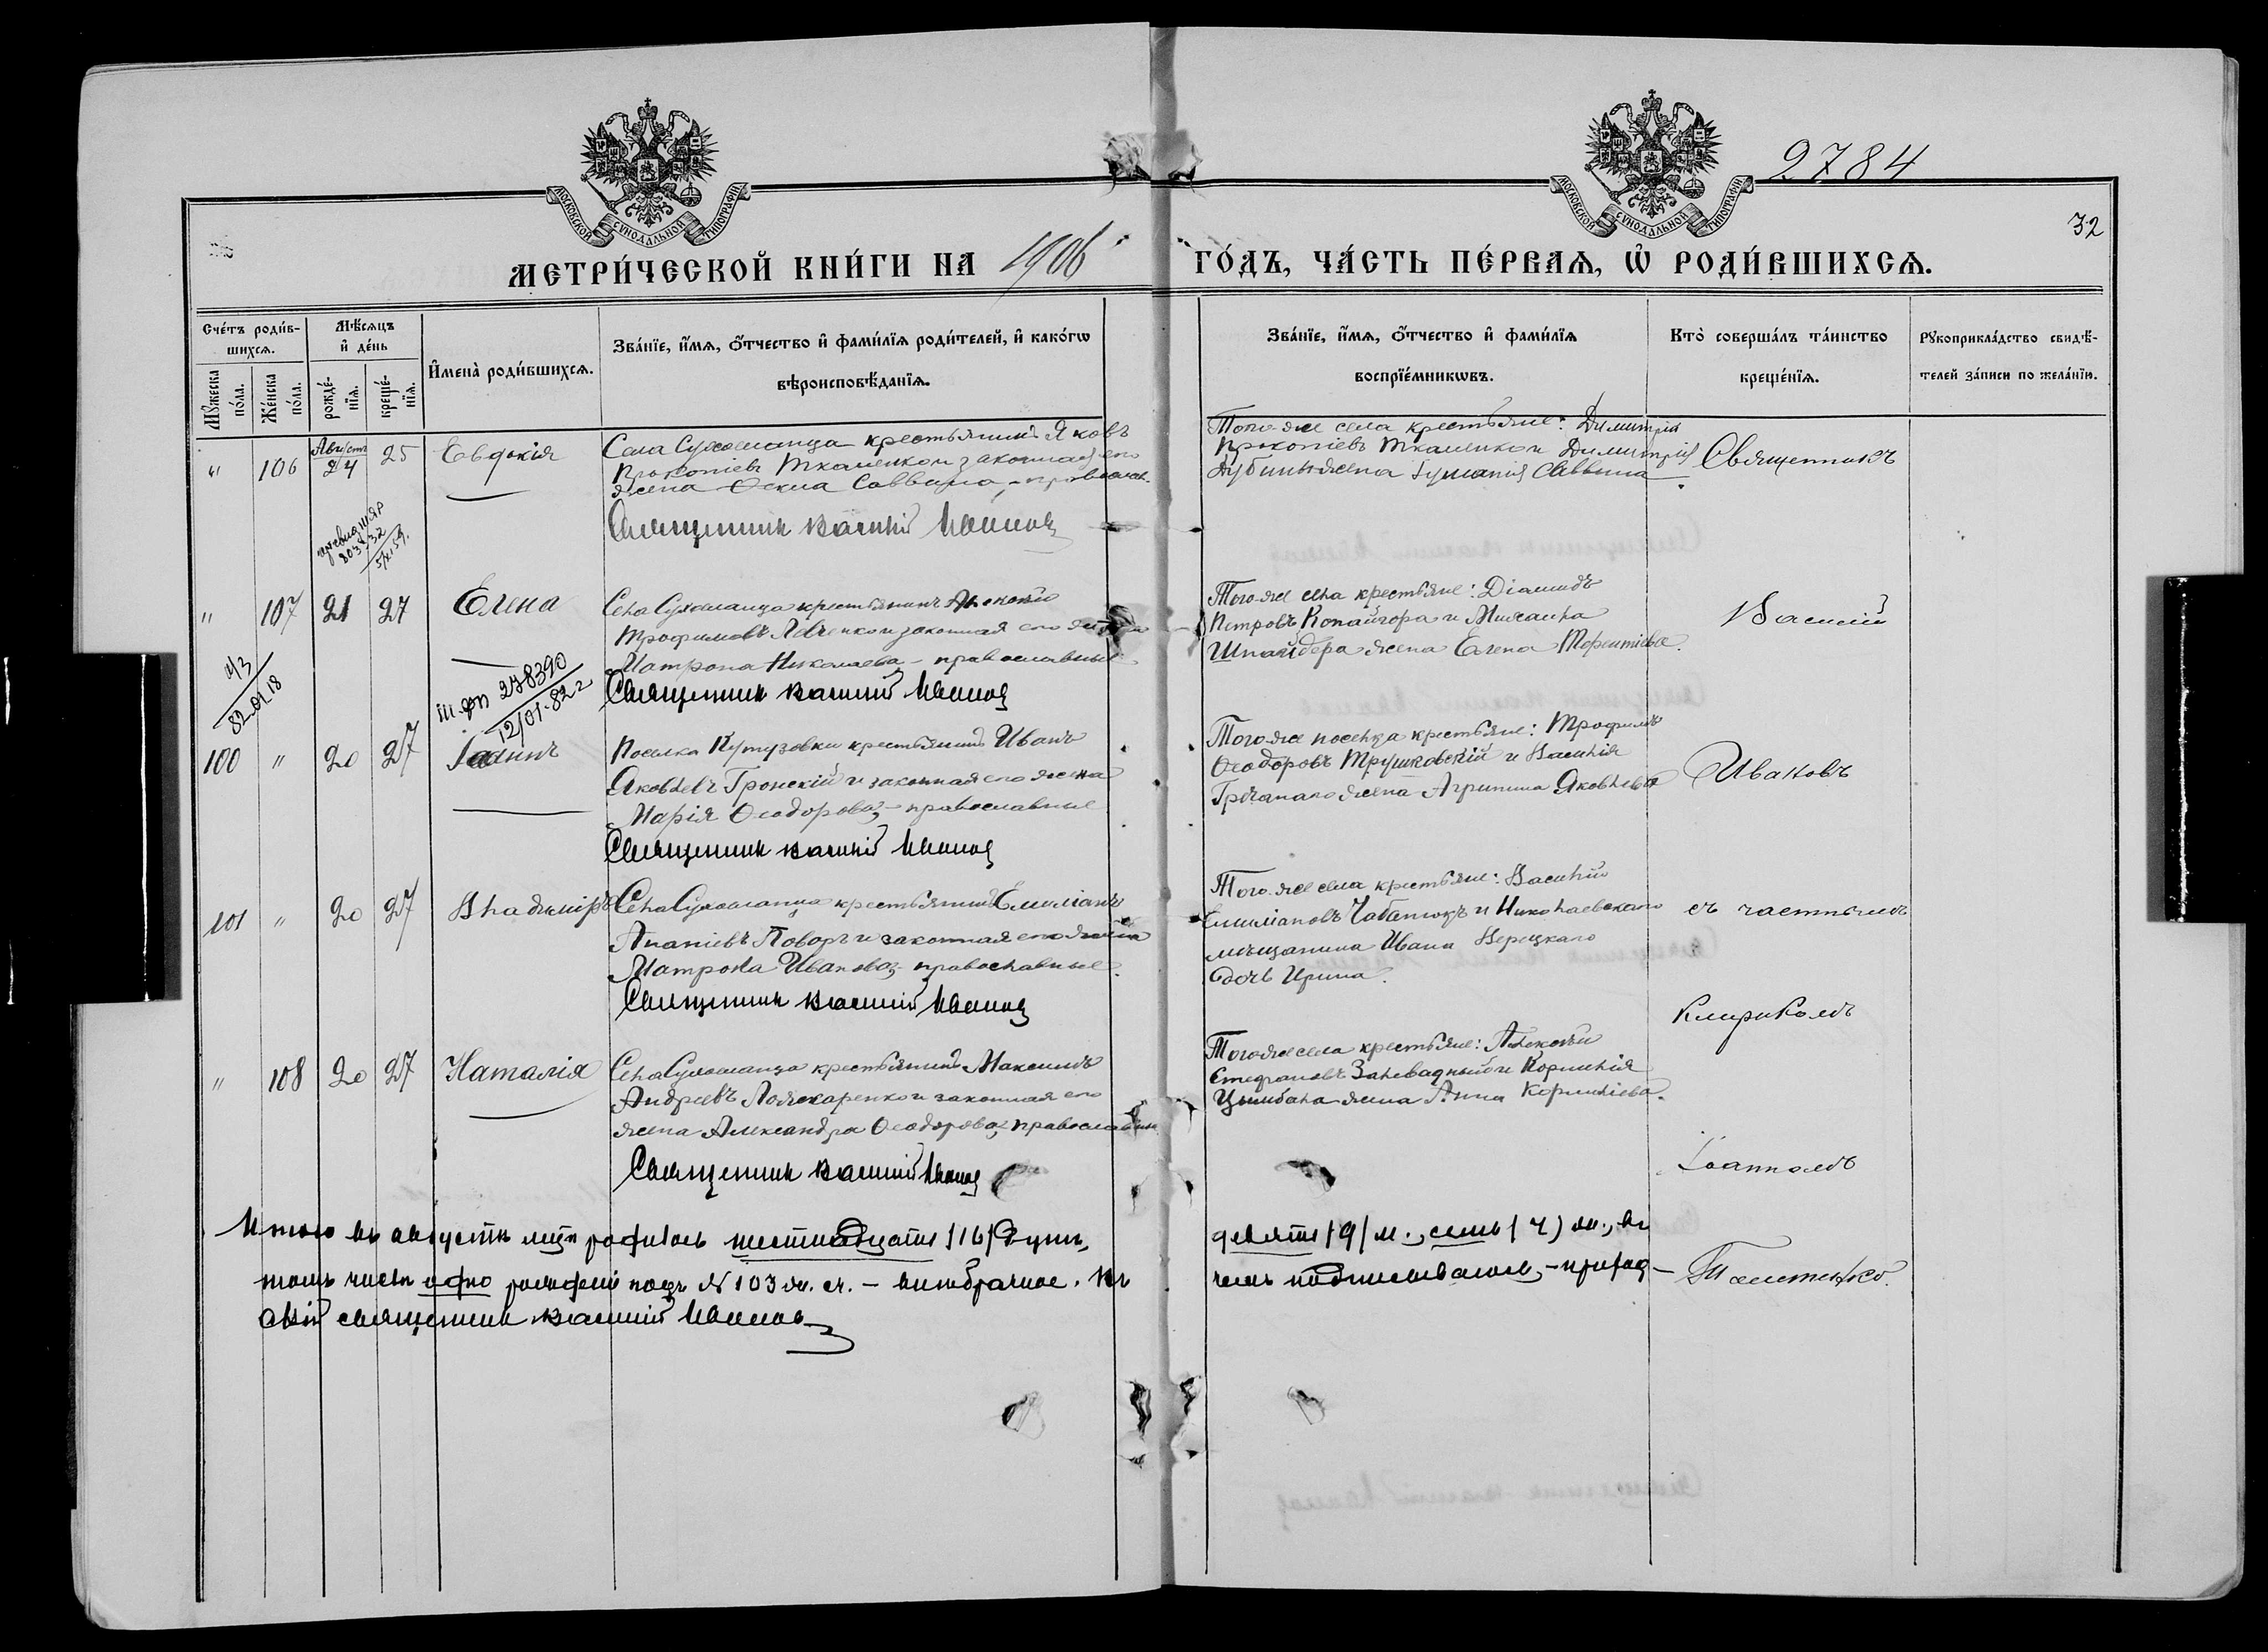 МОСКОВСКОЙ СѴНОДАЛЬНОЙ ТИПОГРАФІИ
МОСКОВСКОЙ СѴНОДАЛЬНОЙ ТИПОГРАФІИ
2784
32
МЕТРИ́ЧЕСКОЙ КНИ́ГИ НА 1906 ГО́ДЪ, ЧА́СТЬ ПЕ́РВАѦ, Ѡ҆ РОДИ́ВШИХСѦ.
Сче́тъ роди́в-
шихсѧ.
Мꙋ́жеска по́ла.
Же́нска по́ла.
Мѣ́сѧцъ
и҆ де́нь
рожде́-нїѧ.
креще́-нїѧ.
И҆мена̀ роди́вшихсѧ.
Зва́нїе, и҆́мѧ, ѻ҆́тчество и҆ фами́лїѧ роди́телей, и҆ како́гѡ
вѣроисповѣ́данїѧ.
Зва́нїе, и҆́мѧ, ѻ҆́тчество и҆ фами́лїѧ
воспрїе́мникѡвъ.
Кто̀ соверша́лъ та́инство
креще́нїѧ.
Рꙋкоприкла́дство свидѣ́-
телей за́писи по жела́нїю.
" 106 Август 24 25 Евдокія
Села Сухоеланца крестьянинъ Яковъ
Прокопіевъ Ткаченко и законная его
жена Ѳекла Саввина, - православ.
Священник Василій Иванов
Того-же села крестьяне: Димитрій
Прокопіевъ Ткаченко и Димитрія
жена Саввина
Священникъ
5/XI 59.
" 107 21 27 Елена
Села Сухоеланца крестьянинъ Алексій
Трофимовъ Левченко и законная его жена
Матрона Николаева - православные
Священник Василий Иванов
Того-же села крестьяне: Діамидъ
Петровъ Копайгора и Михаила
Шнайдера жена Елена Терентіева.
Василій
а/з
82.01.18
278390
12/01-82 г
100 " 20 27 Іоаннъ
Поселка Кутузовки крестьянинъ Иванъ
Яковлевъ Гронскій и законная его жена
Марія Ѳеодорова, - православные
Священник Василій Иванов
Того-же поселка крестьяне: Трофимъ
Ѳеодоровъ Трушковскій и Василія
Гречанаго жена Агрипина Яковлева
Ивановъ
101 " 20 27 Владиміръ
Села Сухоеланца крестьянинъ Емиліанъ
Ананіевъ Поворъ и законная его жена
Матрона Иванова, - православные.
Священник Василий Иванов
Того-же села крестьяне: Василій
Емиліановъ Чабанюкъ и Николаевскаго
мѣщанина Ивана Верецкаго
дочь Ирина.
съ
" 108 20 27 Наталія
Села Сухоеланца крестьянинъ Максимъ
Андреевъ Пожекаренко и законная его
жена Александра Ѳеодорова, православные
Священник Василий Иванов
Того-же села крестьяне: Алексѣй
Стефановъ Заневадный и Корнилія
Цымбала жена Анна Корниліева.
Клирикомъ
Іоанномъ
Итого въ августѣ мцѣ родилось шестнадцать /16/ душъ, девять /9/ м., семь (7) ж., въ
томъ числѣ одно рожденій подъ № 103 ж. п. - внѣбрачное. Въ чемъ подписываюсь, - приход-
скій священник Василий Иванов